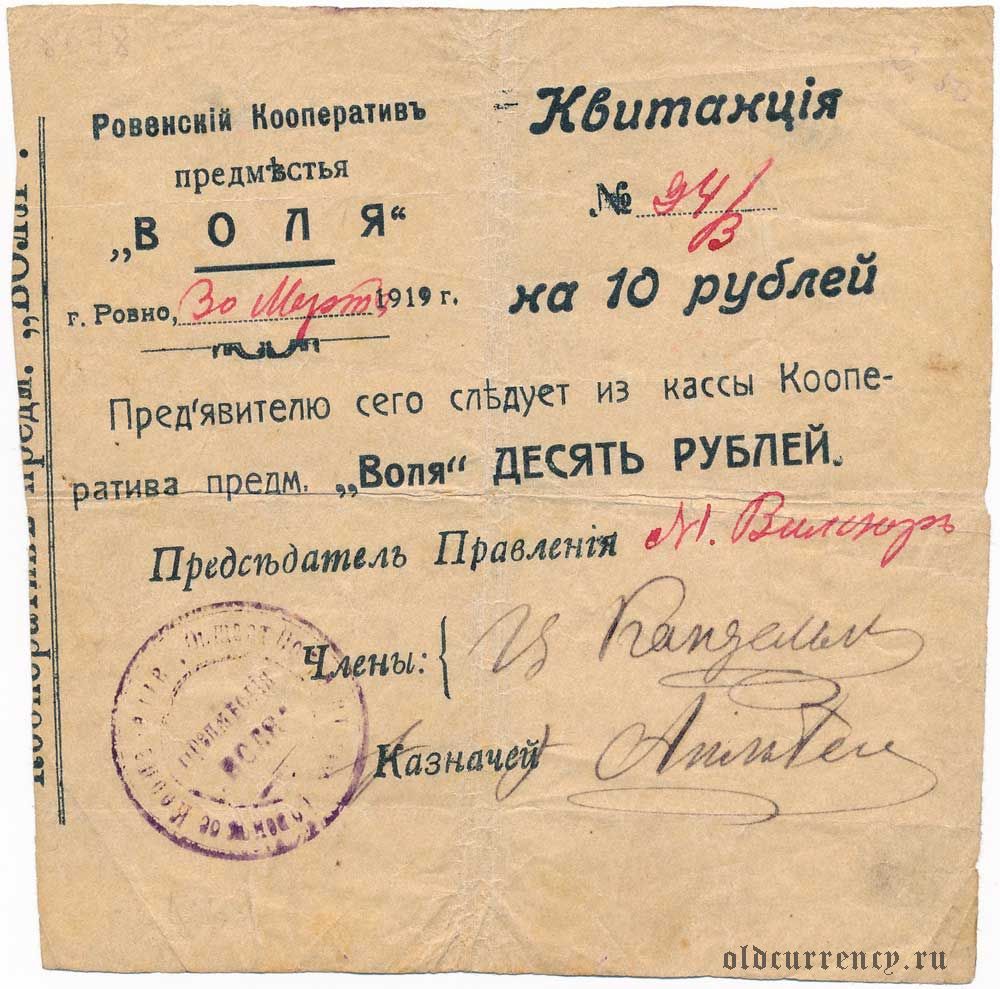 Ровенскій Кооперативъ
предмѣстья
„ВОЛЯ“
г. Ровно, 30 Март 1919 г.
Квитанція
№ 94/В
на 10 рублей
Пред'явителю сего слѣдует из кассы Коопе-
ратива предм. „Воля“ ДЕСЯТЬ РУБЛЕЙ.
Предсѣдатель Правленія М.
Члены: Ц
Казначей
предм. „ВОЛЯ“.
oldcurrency.ru